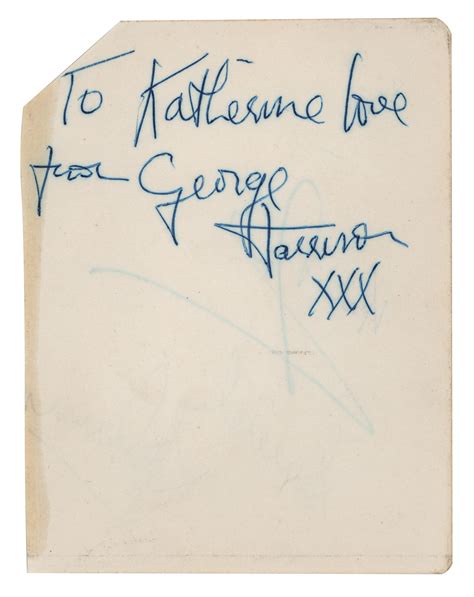 To Katherine love
from George
Harrison
XXX